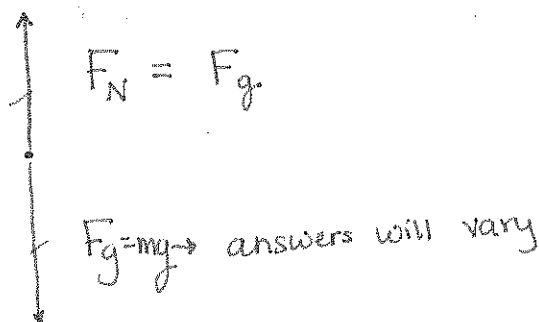 F_N = F_g.
F_g=mg→ answers will vary